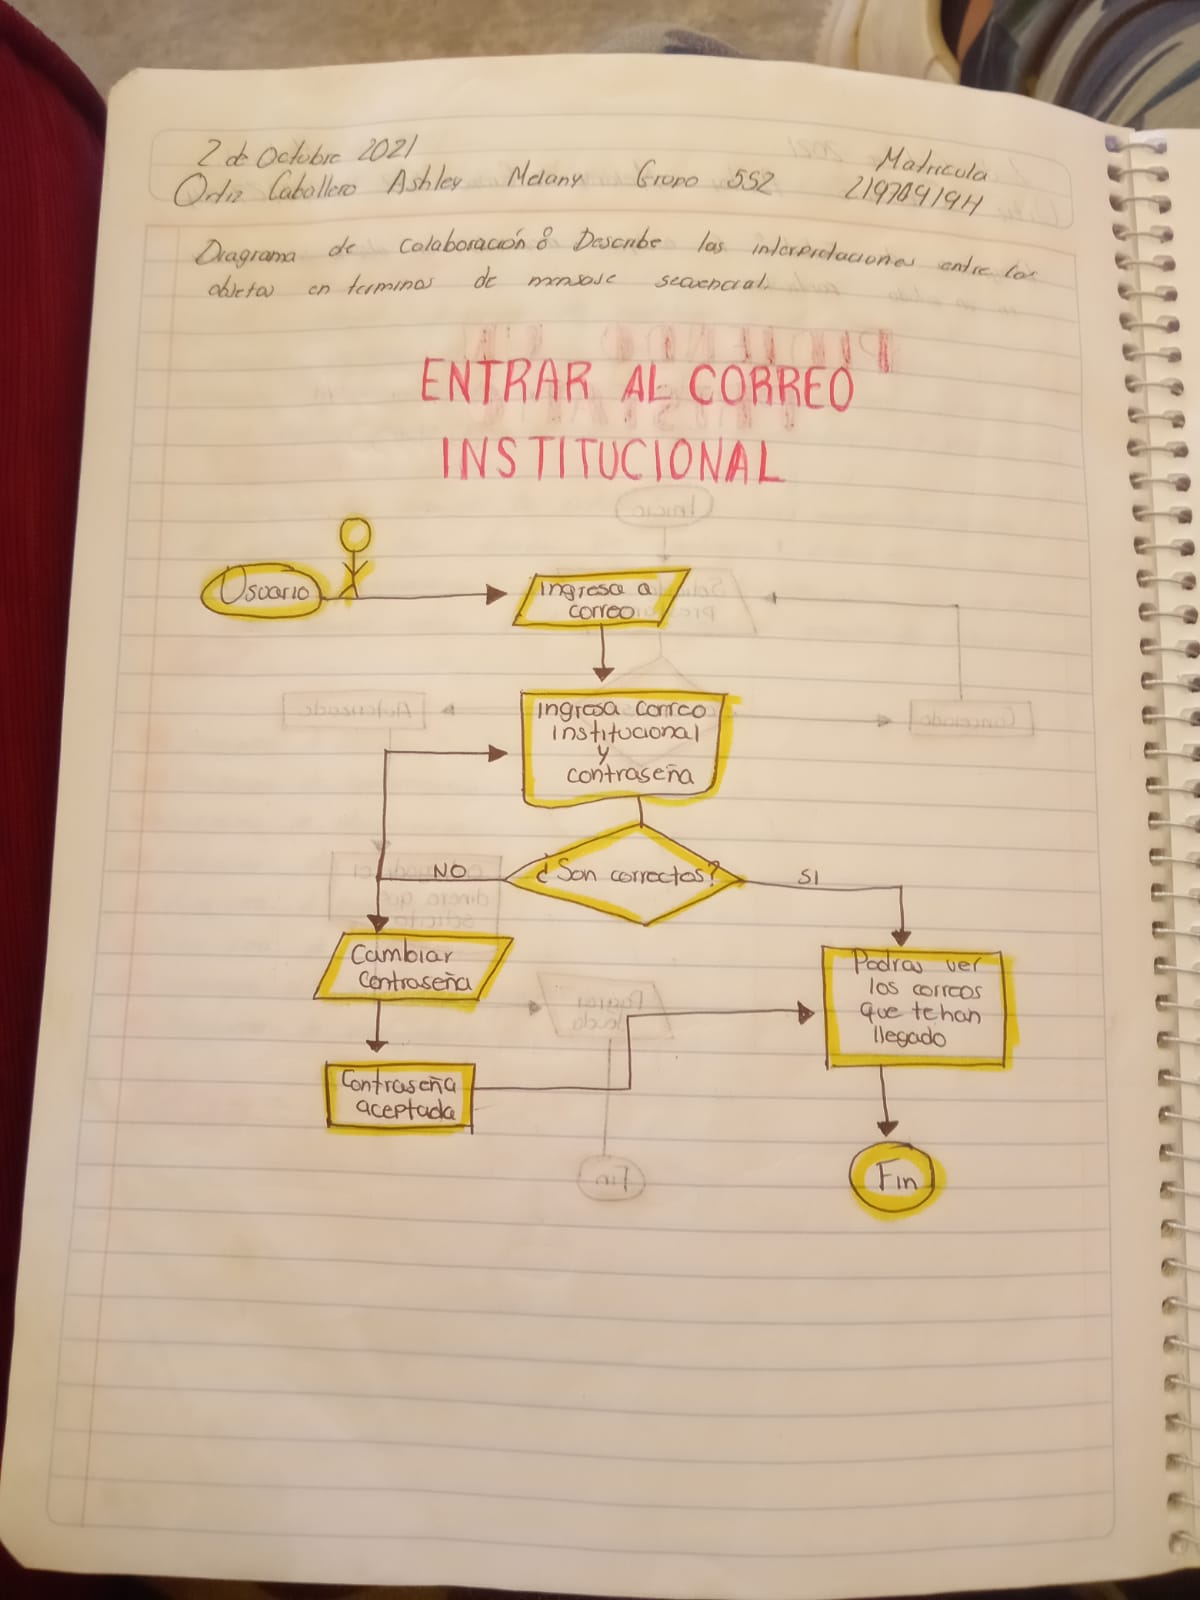 2 de Octubre 2021
Matricula
Ortiz Caballero Ashley Melany Grupo 552
Diagrama de Colaboración: Describe las interpretaciones entre los
objetos en terminos de mensaje secuencial.
ENTRAR AL CORREO
INSTITUCIONAL
Usuario
Ingresa a
correo
Ingresa correo
institucional
y
contraseña
¿Son correctos?
NO
SI
Cambiar
contraseña
Podras ver
los correos
que te han
llegado
Contraseña
aceptada
Fin